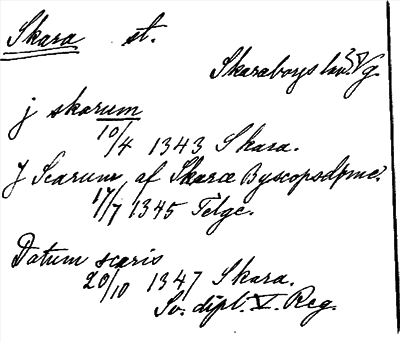 Skara st.
Skaraborgs län. VG.
j skarum
10/4 1343 Skara.
J Scarum, af Skaræ Byscopsdøme.
17/7 1345 Telge.
Datum scaris
20/10 1347 Skara.
Sv. dipl. V. Reg.